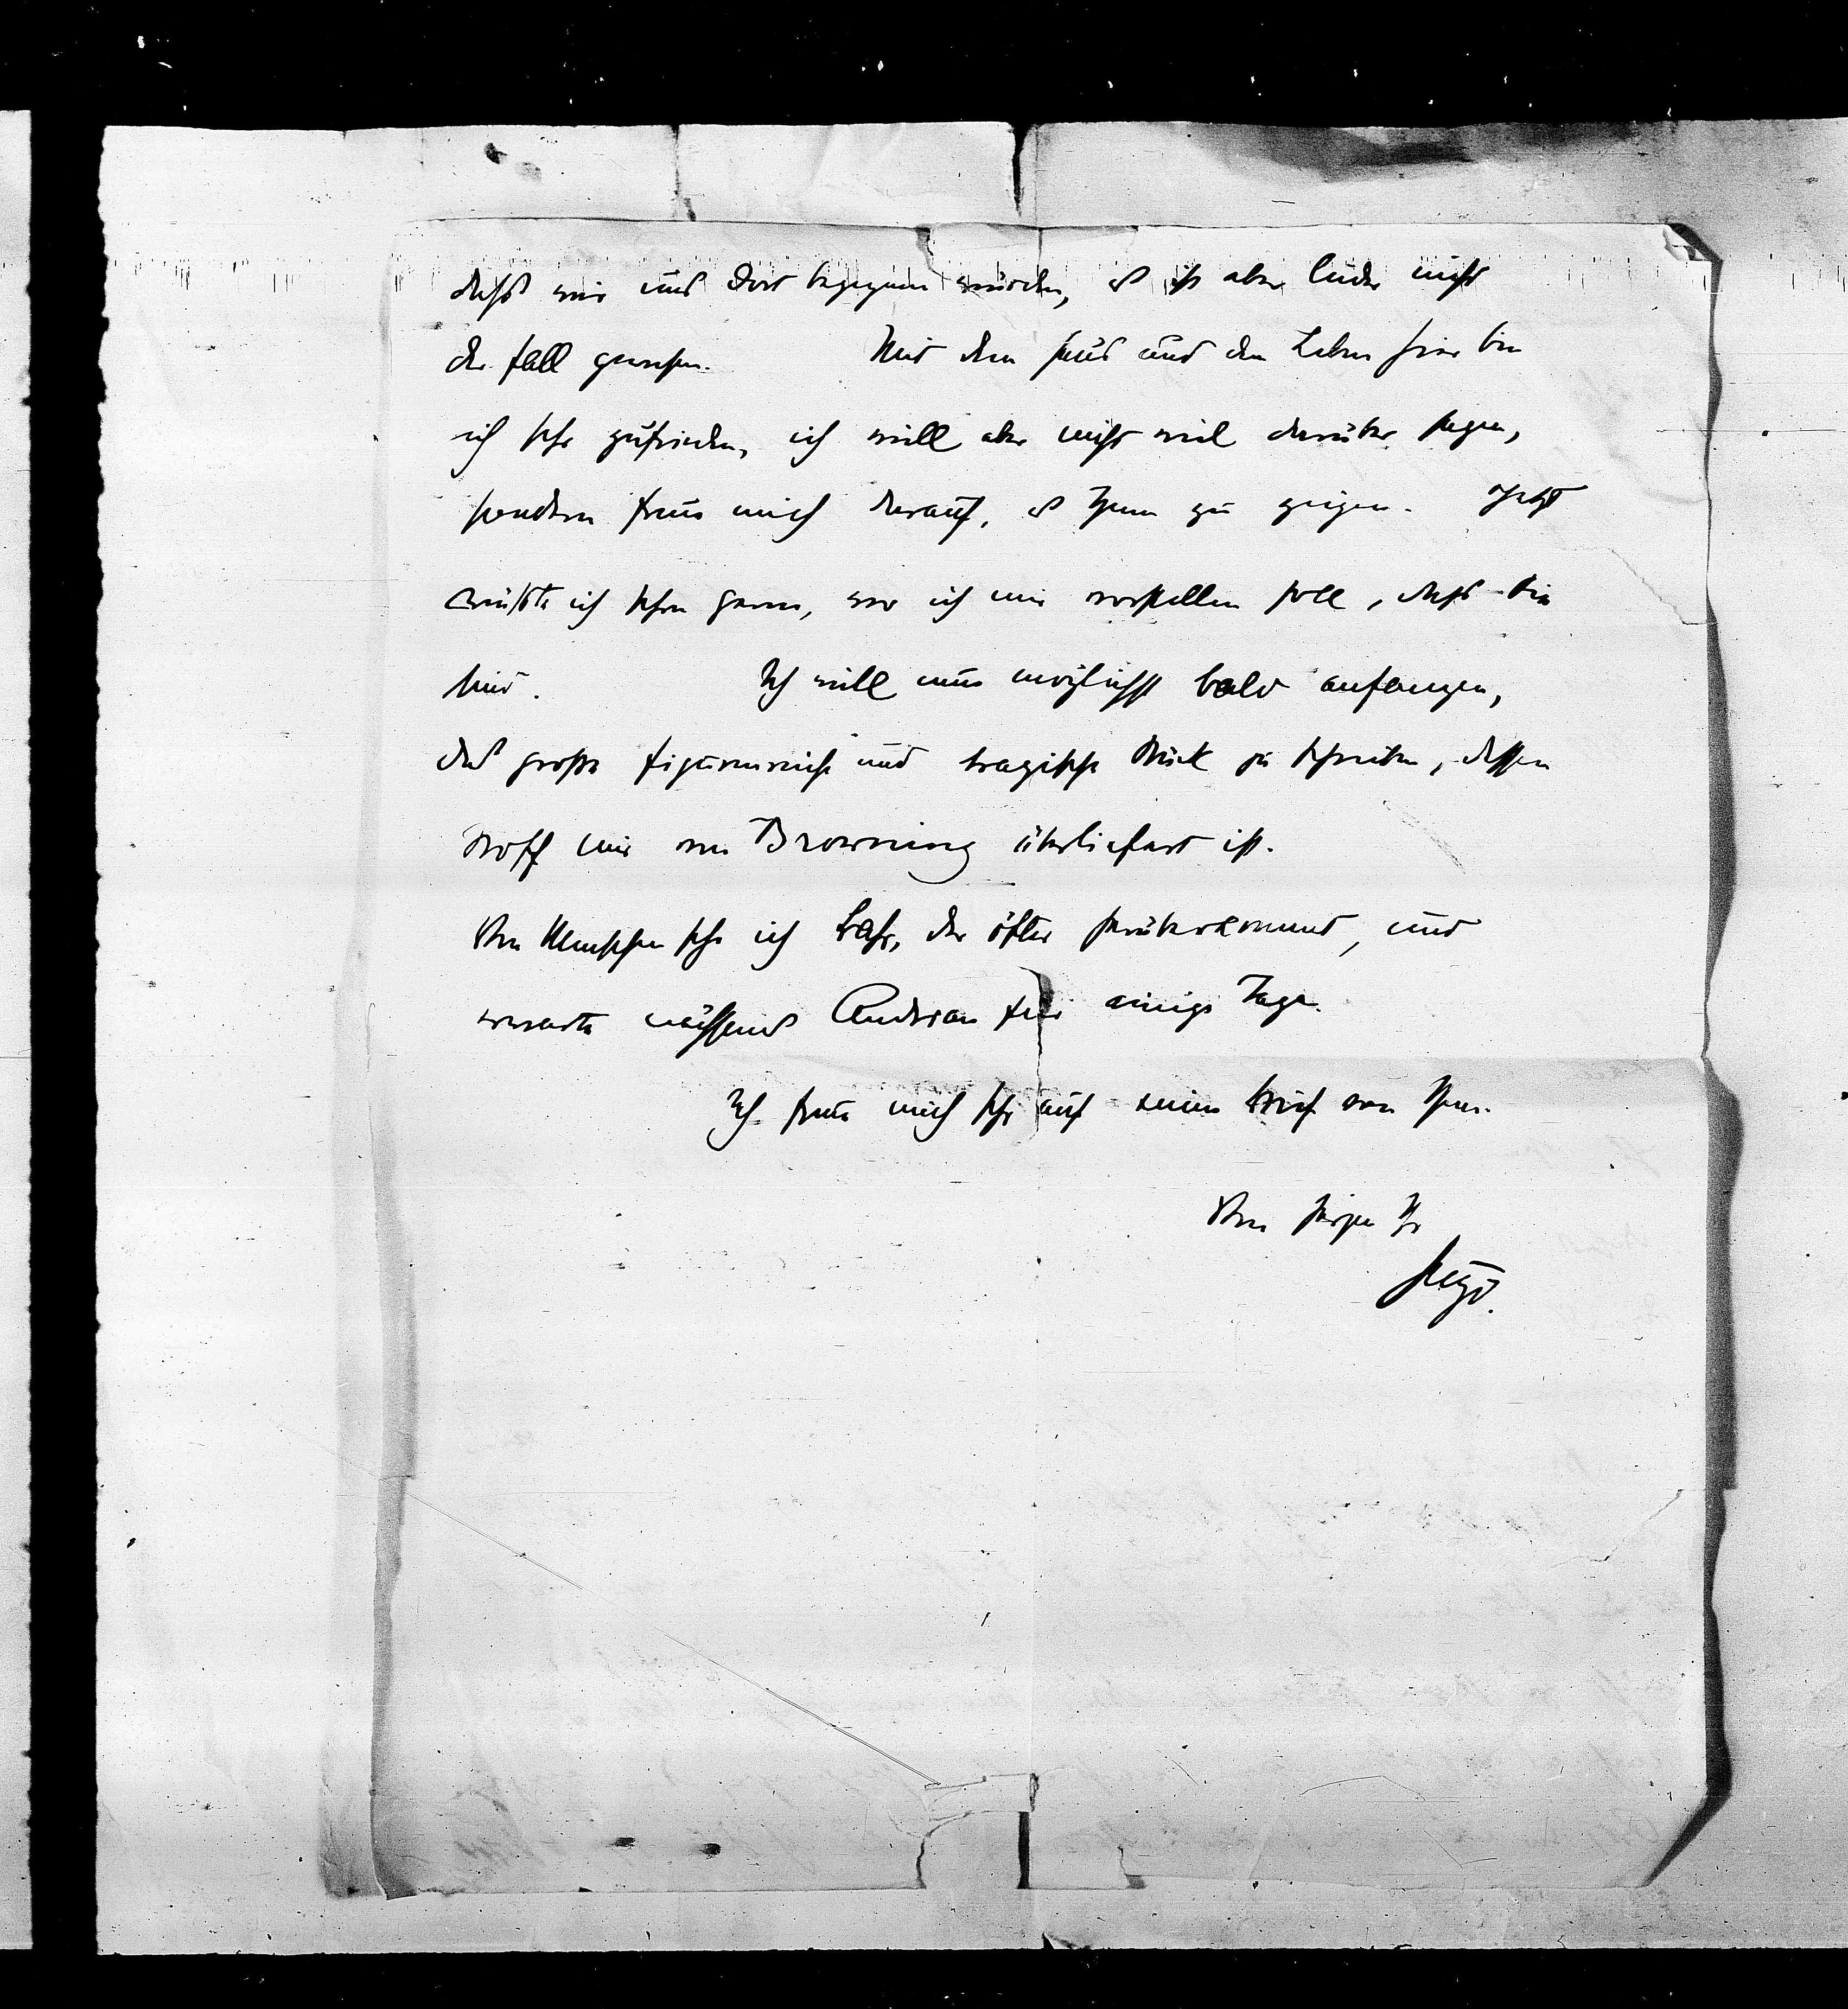 dass wir uns dort begegnen würden, es ist aber leider nicht
der Fall gewesen. Mit dem Haus und dem Leben hier bin
ich sehr zufrieden, ich will aber nicht viel darüber sagen,
sondern freue mich darauf, es Ihnen zu zeigen. Jetzt
wüßte ich schon gerne, wo ich mir vorstellen soll, dass Sie
sind. Ich will nun möglichst bald anfangen,
das große figurenreiche und tragische Stück zu schreiben, dessen
Stoff mir von Browning überliefert ist.
Von Menschen sehe ich Bahr, der öfter herüberkommt, und
erwarte nächstens Andrian für einige Tage.
Ich freue mich sehr auf einen Brief von Ihnen.
Von Herzen Ihr
Hugo.